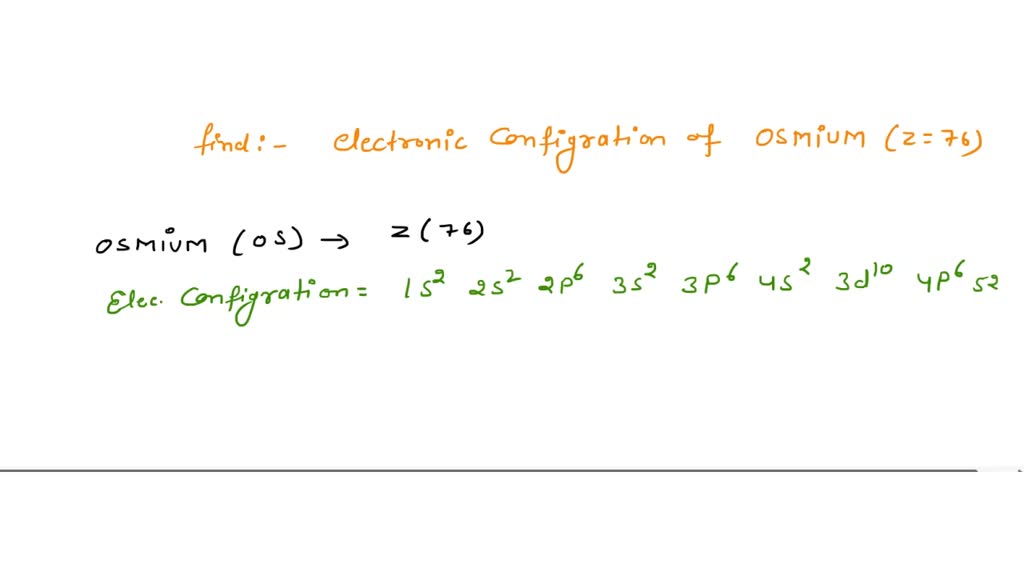 find:- electronic configration of OSMIUM (Z=76)
OSMIUM (OS) → Z(76)
Elec. Configration = 1s² 2s² 2p⁶ 3s² 3p⁶ 4s² 3d¹⁰ 4p⁶ 52